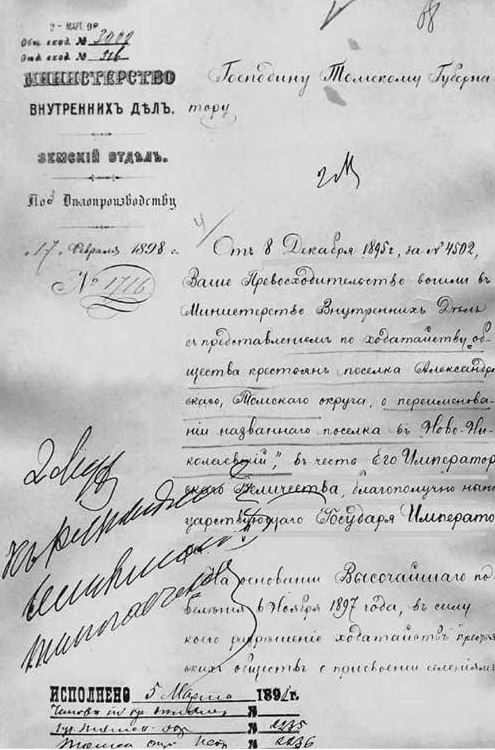 2 - МАР. 98
Общ. вход. №
Отд. вход. №
МИНИСТЕРСТВО
ВНУТРЕННИХЪ ДѢЛЪ.
ЗЕМСКІЙ ОТДѢЛЪ.
По Дѣлопроизводству
17 Февраля 1898 г.
№ 1716
Господину Томскому Губерна
тору
Отъ 8 Декабря 1895 г., за № 4502,
Ваше Превосходительство вошли въ
Министерство Внутреннихъ Дѣлъ
съ представленіемъ по ходатайству об-
щества крестьянъ поселка Александров
скаго, Томскаго округа, о переименова
ніи названнаго поселка въ „Ново-Ни-
колаевскій", въ честь Его Император
скаго Величества, благополучно нынѣ
царствующаго Государя Императо
На основаніи Высочайшаго по
велѣнія 6 Ноября 1897 года, въ силу
коего разрѣшеніе ходатайствъ
скихъ обществъ о присвоеніи селеніямъ
ИСПОЛНЕНО 5 Марта 189 г.
№
№ 2235
№ 2236